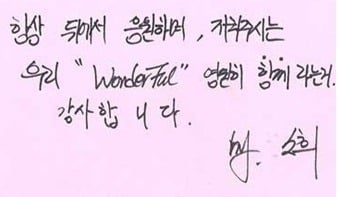 항상 뒤에서 응원하며, 지켜주시는
우리 "WonderFul" 영원히 함께 라는거.
감사합 니 다.
by. 소희